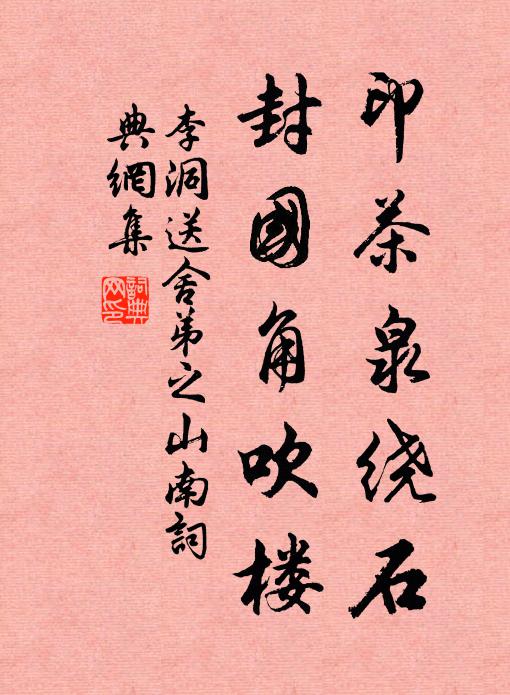 印茶泉绕石
封國角吹楼
李洞送舍弟之山南詞
典網集
詞典網印